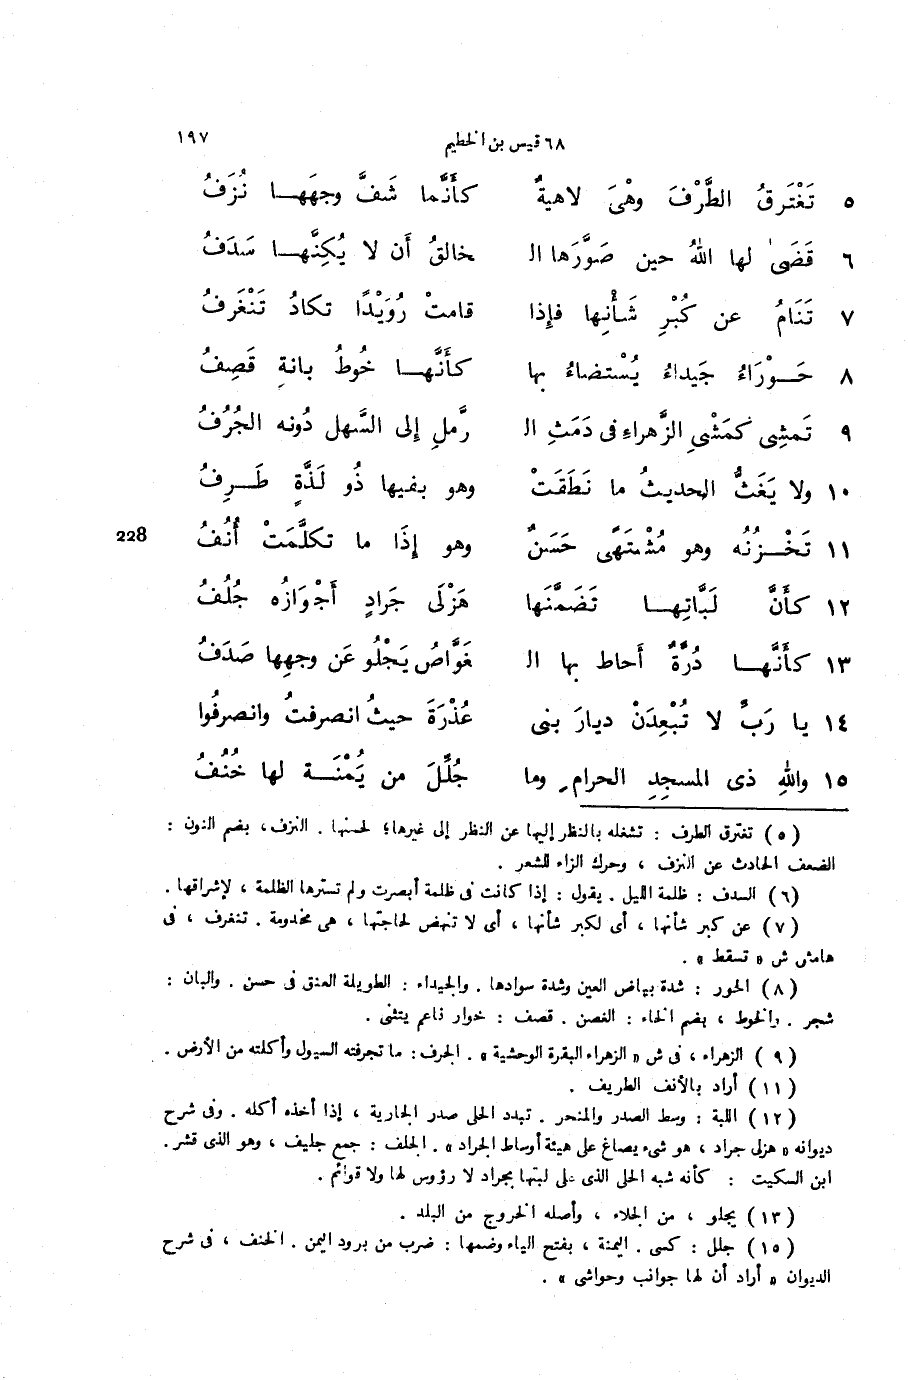 ٦٨ قيس بن الخطيم ١٩٧
٥ تَغْتَرِقُ الطَّرْفَ وهْىَ لاهيةٌ كأَنَّما شَفَّ وجهَهـا نُزَفُ
٦ قَضَى لها اللهُ حين صَوَّرَها الـ خالقُ أَن لا يُكِنَّهـا سَدَفُ
٧ تَنَامُ عن كُبْرِ شَأْنِها فإِذا قامتْ رُوَيْدًا تكادُ تَنْغَرِفُ
٨ حَـوْرَاءُ جَيداءُ يُسْتضاءُ بها كأَنَّهـا خُوطُ بانةٍ قَصِفُ
٩ تَمشِى كمَشْىِ الزَّهراءِ فى دَمَثِ الـ رَّملِ إلى السَّهل دُونه الجُرُفُ
١٠ ولا يَغَثُّ الحديثُ ما نَطَقَتْ وهو بفيها ذُو لَذَّةٍ طَـرِفُ
228
١١ تَخْـزُنُه وهو مُشْتهًى حَسَنٌ وهو إِذَا ما تكلَّمَتْ أُنُفُ
١٢ كأَنَّ لَبَّاتِهـا تَضَمَّنَها هَزْلَى جَرادٍ أَجْوَازُه جُلُفُ
١٣ كأَنَّهـا دُرَّةٌ أَحاط بها الـ غَوَّاصُ يَجْلُو عَن وجهِها صَدَفُ
١٤ يا رَبِّ لا تُبْعِدَنْ ديارَ بنى عُذْرَةَ حيثُ انصرفتُ وانصرفُوا
١٥ واللهِ ذى المسجدِ الحرامِ وما جُلِّلَ من يُمْنَـةٍ لها خُنُفُ
(٥) تغترق الطرف : تشغله بالنظر إليها عن النظر إلى غيرها؛ لحسنها . النزف، بضم النون :
الضعف الحادث عن النزف ، وحرك الزاء للشعر .
(٦) السدف : ظلمة الليل . يقول : إذا كانت فى ظلمة أبصرت ولم تسترها الظلمة ، لإشراقها .
(٧) عن كبر شأنها ، أى لكبر شأنها ، أى لا تنهض لحاجتها ، هى مخدومة . تنغرف ، فى
هامش ش « تسقط » .
(٨) الحور : شدة بياض العين وشدة سوادها . والجيداء : الطويلة العنق فى حسن . والبان :
شجر . والخوط ، بضم الخاء : الغصن . قصف : خوار ناعم يتثنى .
(٩) الزهراء ، فى ش « الزهراء البقرة الوحشية » . الجرف: ما تجرفته السيول وأكلته من الأرض .
(١١) أراد بالأنف الطريف .
(١٢) اللبة : وسط الصدر والمنحر . تبدد الحلى صدر الجارية ، إذا أخذه أكله . وفى شرح
ديوانه « هزلى جراد ، هو شىء يصاغ على هيئة أوساط الجراد » . الجلف : جمع جليف ، وهو الذى قشر .
ابن السكيت : كأنه شبه الحلى الذى على لبتها بجراد لا رؤوس لها ولا قوائم .
(١٣) يجلو ، من الجلاء ، وأصله الخروج من البلد .
(١٥) جلل : كسى . اليمنة ، بفتح الياء وضمها : ضرب من برود اليمن . الخنف ، فى شرح
الديوان « أراد أن لها جوانب وحواشى » .